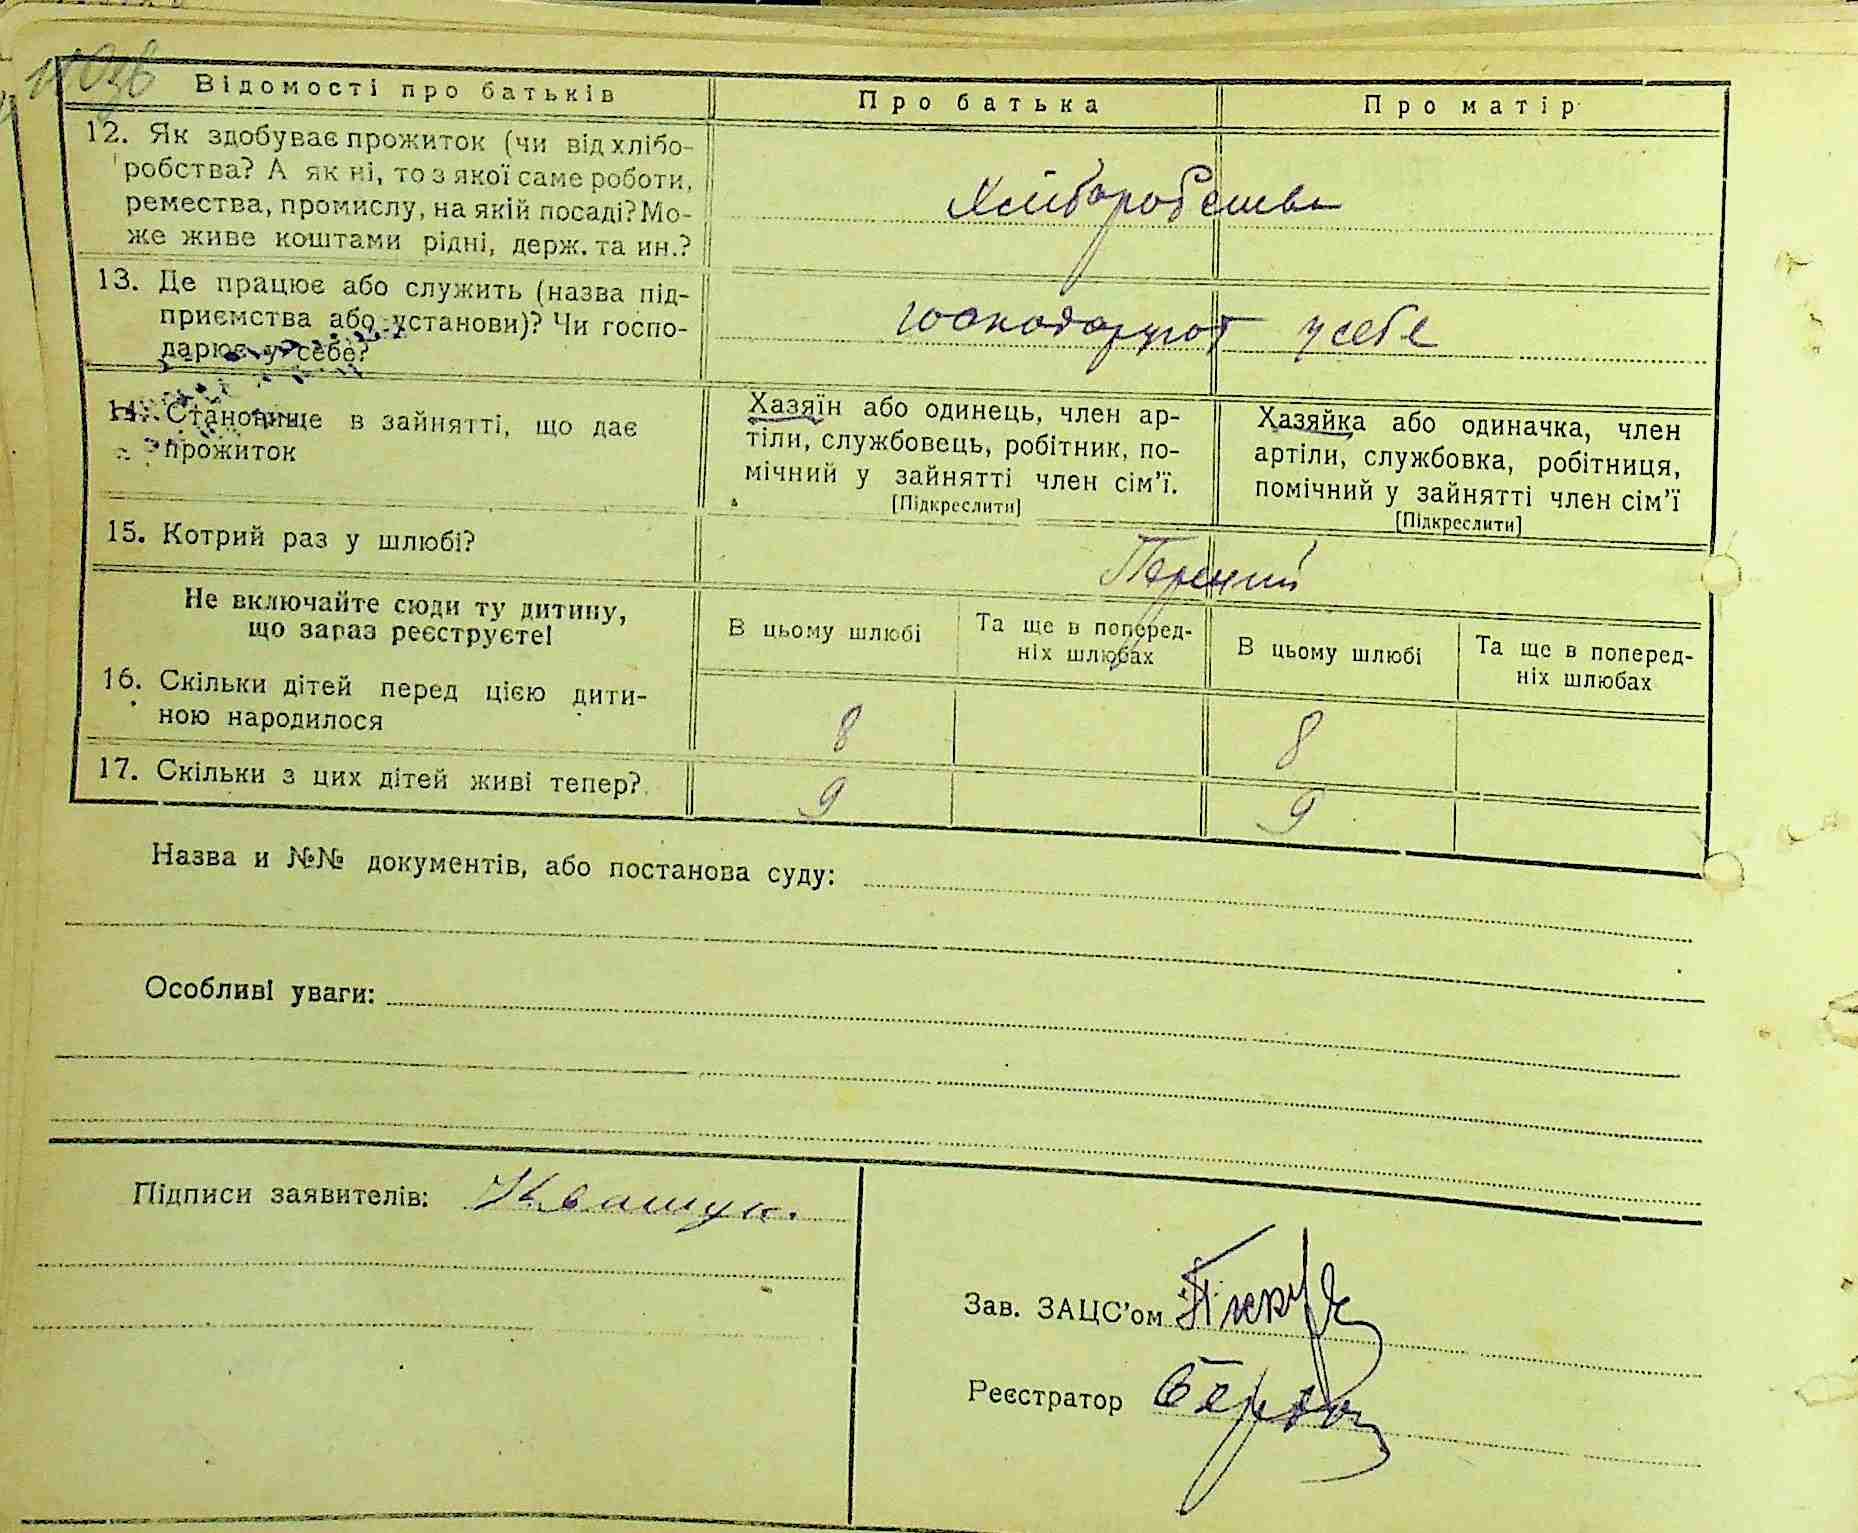 Відомості про батьків
Про батька
Про матір
12. Як здобуває прожиток (чи від хлібо-
робства? А як ні, то з якої саме роботи,
ремества, промислу, на якій посаді? Мо-
же живе коштами рідні, держ. та ин.?
Хліборобства
13. Де працює або служить (назва під-
приємства або установи)? Чи госпо-
дарює у себе?
господарюют у себе
14. Становище в зайнятті, що дає
прожиток
Хазяїн або одинець, член ар-
тіли, службовець, робітник, по-
мічний у зайнятті член сім’ї.
[Підкреслити]
Хазяйка або одиначка, член
артіли, службовка, робітниця,
помічний у зайнятті член сім’ї
[Підкреслити]
15. Котрий раз у шлюбі?
Первий
Не включайте сюди ту дитину,
що зараз реєструєте!
В цьому шлюбі
Та ще в поперед-
ніх шлюбах
В цьому шлюбі
Та ще в поперед-
ніх шлюбах
16. Скільки дітей перед цією дити-
ною народилося
8
8
17. Скільки з цих дітей живі тепер?
9
9
Назва и №№ документів, або постанова суду:
Особливі уваги:
Підписи заявителів: Квашук.
Зав. ЗАЦС’ом
Реєстратор